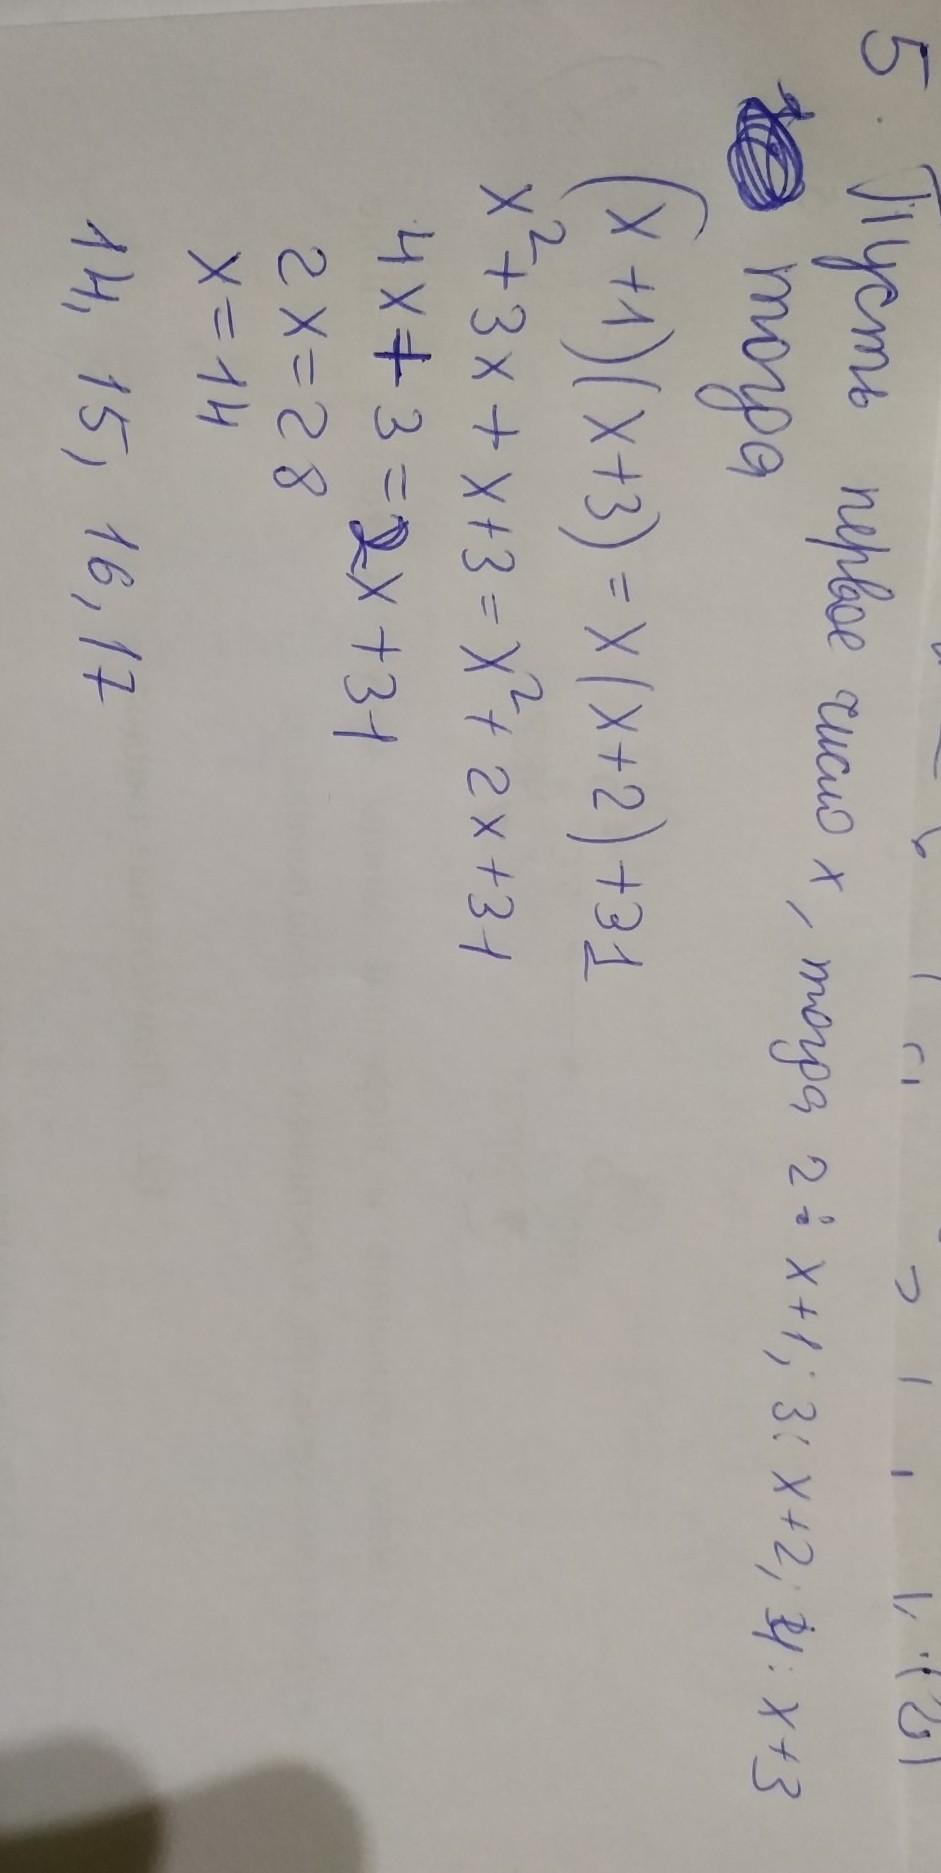 5. Пусть первое число x, тогда 2: x+1; 3: x+2; 4: x+3
тогда
(x+1)(x+3)=x(x+2)+31
x²+3x+x+3=x²+2x+31
4x+3=2x+31
2x=28
x=14
14, 15, 16, 17